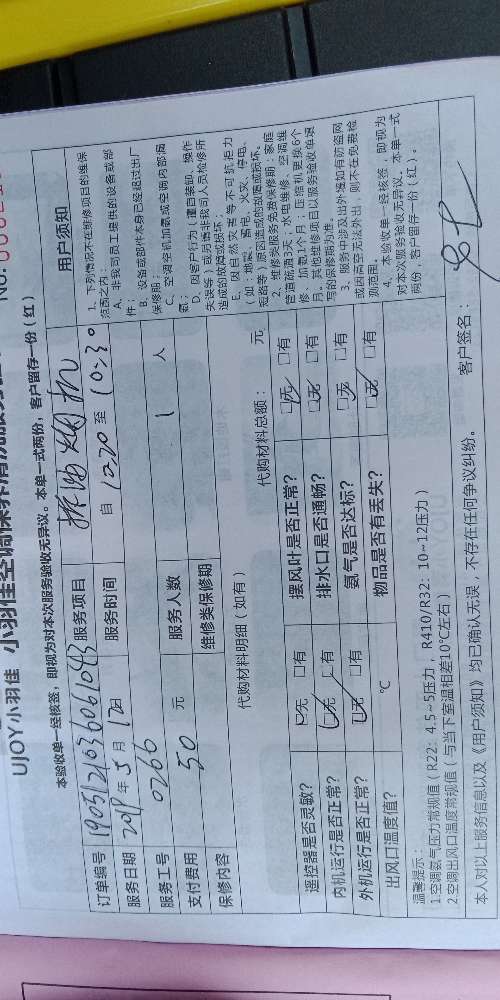 UJOY小羽佳 小羽佳空调保养清洗服务
No:
本验收单一经核签，即视为对本次服务验收无异议。本单一式两份，客户留存一份（红）
订单编号 190512103606108 服务项目 排油烟机 用户须知
服务日期 2019年5月12日 服务时间 自 12:20 至 10:30
服务工号 0266 服务人数 1 人
支付费用 50 元 维修类保修期
保修内容
代购材料明细（如有） 代购材料总额： 元
遥控器是否灵敏？ □无 □有 摆风叶是否正常？ □无 □有
内机运行是否正常？ □无 □有 排水口是否通畅？ □无 □有
外机运行是否正常？ □无 □有 氨气是否达标？ □无 □有
出风口温度值？ ℃ 物品是否有丢失？ □无 □有
1. 下列情况不在维修项目的维保范围之内：
A、非我司员工提供的设备或部件；
B、设备或部件本身已经超过出厂保修期；
C、空调空机加氨或空调内部腐蚀；
D、因客户行为（擅自装卸、操作失误等）或另请非我司人员检修所造成的故障或损坏；
E、因自然灾害等不可抗拒力（如：地震、雷电、火灾、停电、短路等）原因造成的故障或损坏。
2、维修类服务免费保修期：家庭管道疏通3天；水电维修、空调维修、加氨1个月；压缩机更换6个月。其他维修项目以服务验收单填写的保修期为准。
3、服务中涉及出外滩如有防盗网或因高空无法外出，则不在免费检测范围。
4、本验收单一经核签，即视为对本次服务验收无异议。本单一式两份，客户留存一份（红）。
温馨提示：
1.空调氨气压力常规值（R22：4.5~5压力， R410/R32：10~12压力）
2.空调出风口温度常规值（与当下室温相差10℃左右）
本人对以上服务信息以及《用户须知》均已确认无误，不存在任何争议纠纷。 客户签名：